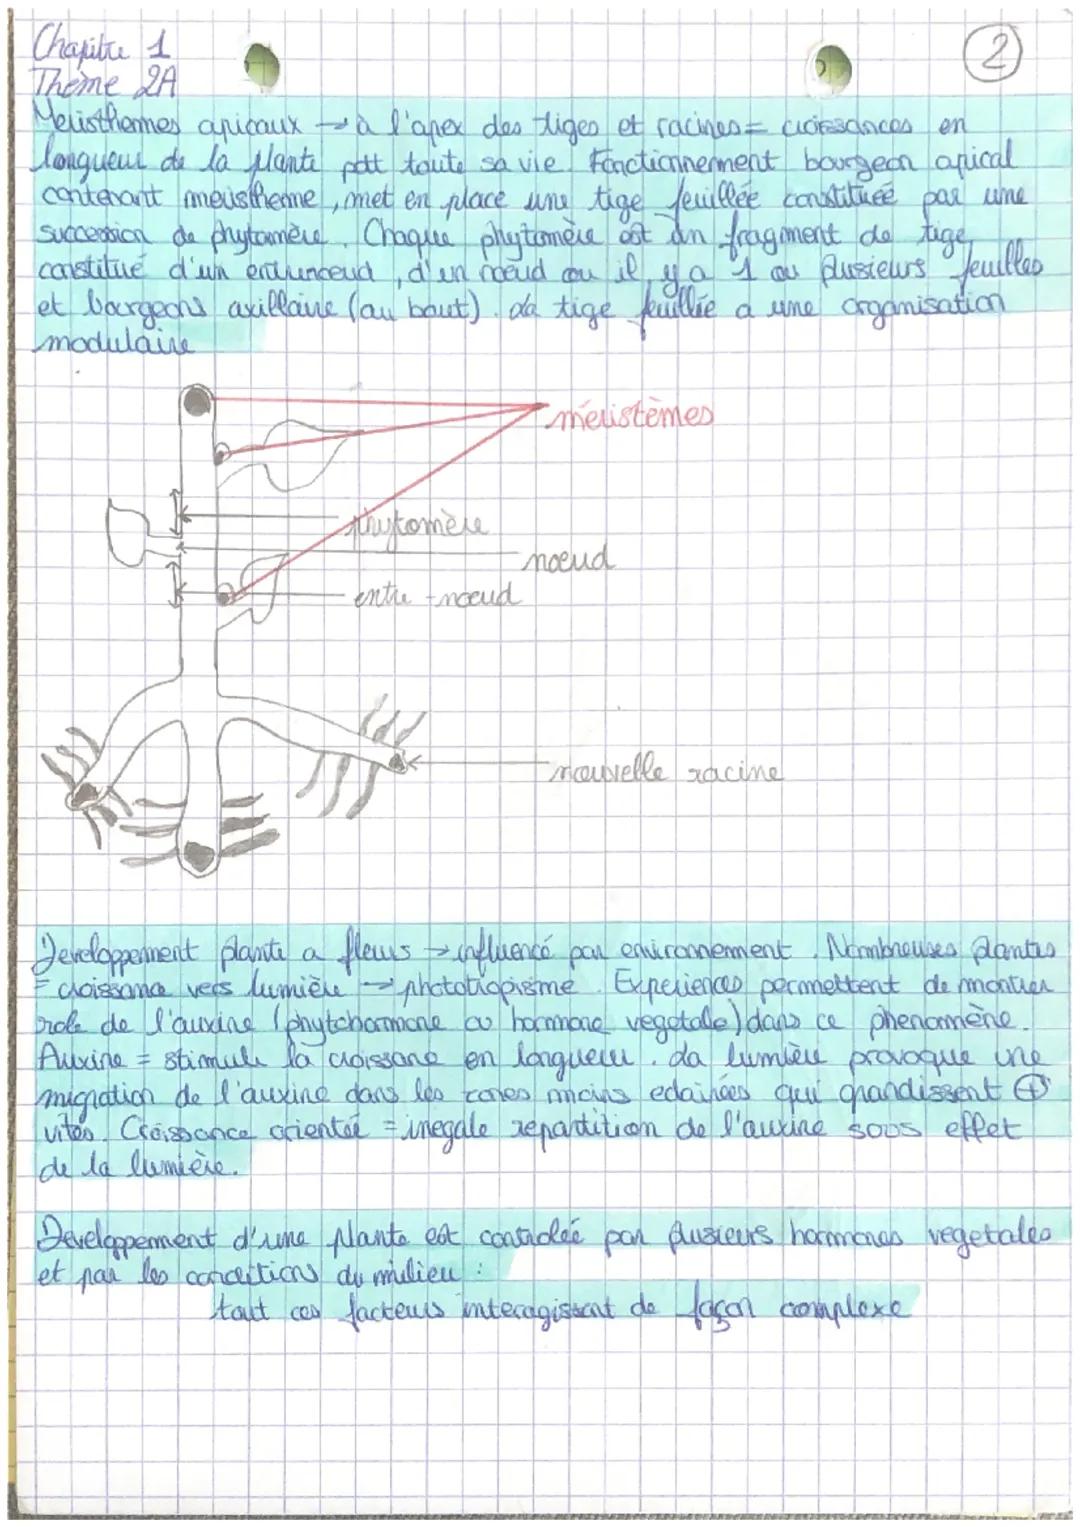 Chapitre 1
Thème 2A
2
Meristhemes apicaux → à l'apex des tiges et racines = croissances en
longueur de la plante pdt toute sa vie. Fonctionnement bourgeon apical
contenant meristheme, met en place une tige feuillée constituée par une
succession de phytomère. Chaque phytomère est un fragment de tige,
constitué d'un entrenoeud, d'un noeud ou il y a 1 ou plusieurs feuilles
et bourgeons axillaire (au bout). La tige feuillée a une organisation
modulaire
méristèmes
phytomère
noeud
entre-noeud
nouvelle racine
Developpement plante a fleurs → influencé par environnement. Nombreuses plantes
= croissance vers lumière → phototropisme. Experiences permettent de montrer
role de l'auxine (phytohormone ou hormone vegetale) dans ce phenomène.
Auxine = stimule la croissane en longueur. La lumière provoque une
migration de l'auxine dans les zones moins eclairées qui grandissent +
vites. Croissance orientée = inegale repartition de l'auxine sous effet
de la lumière.
Developpement d'une plante est controlée par plusieurs hormones vegetales
et par les conditions du milieu :
tout ces facteurs interagissent de façon complexe